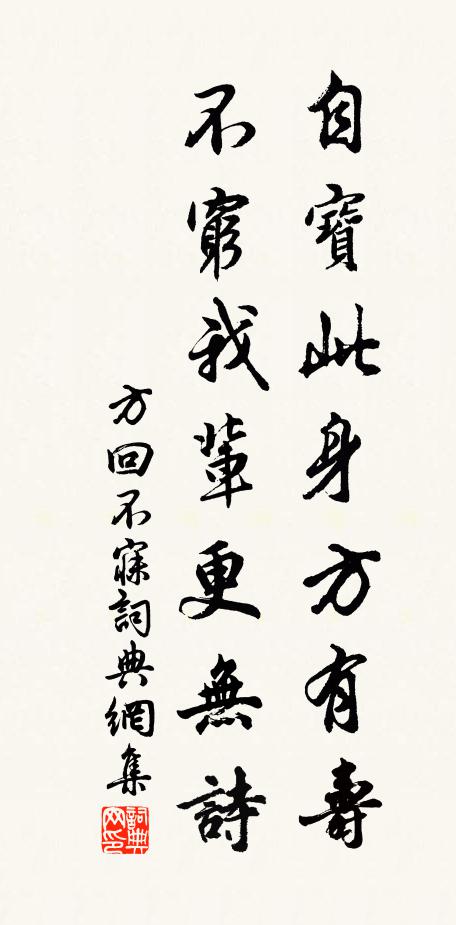 自寶此身方有壽
不窮我輩更無詩
方回不寐詞典網集
詞典網印